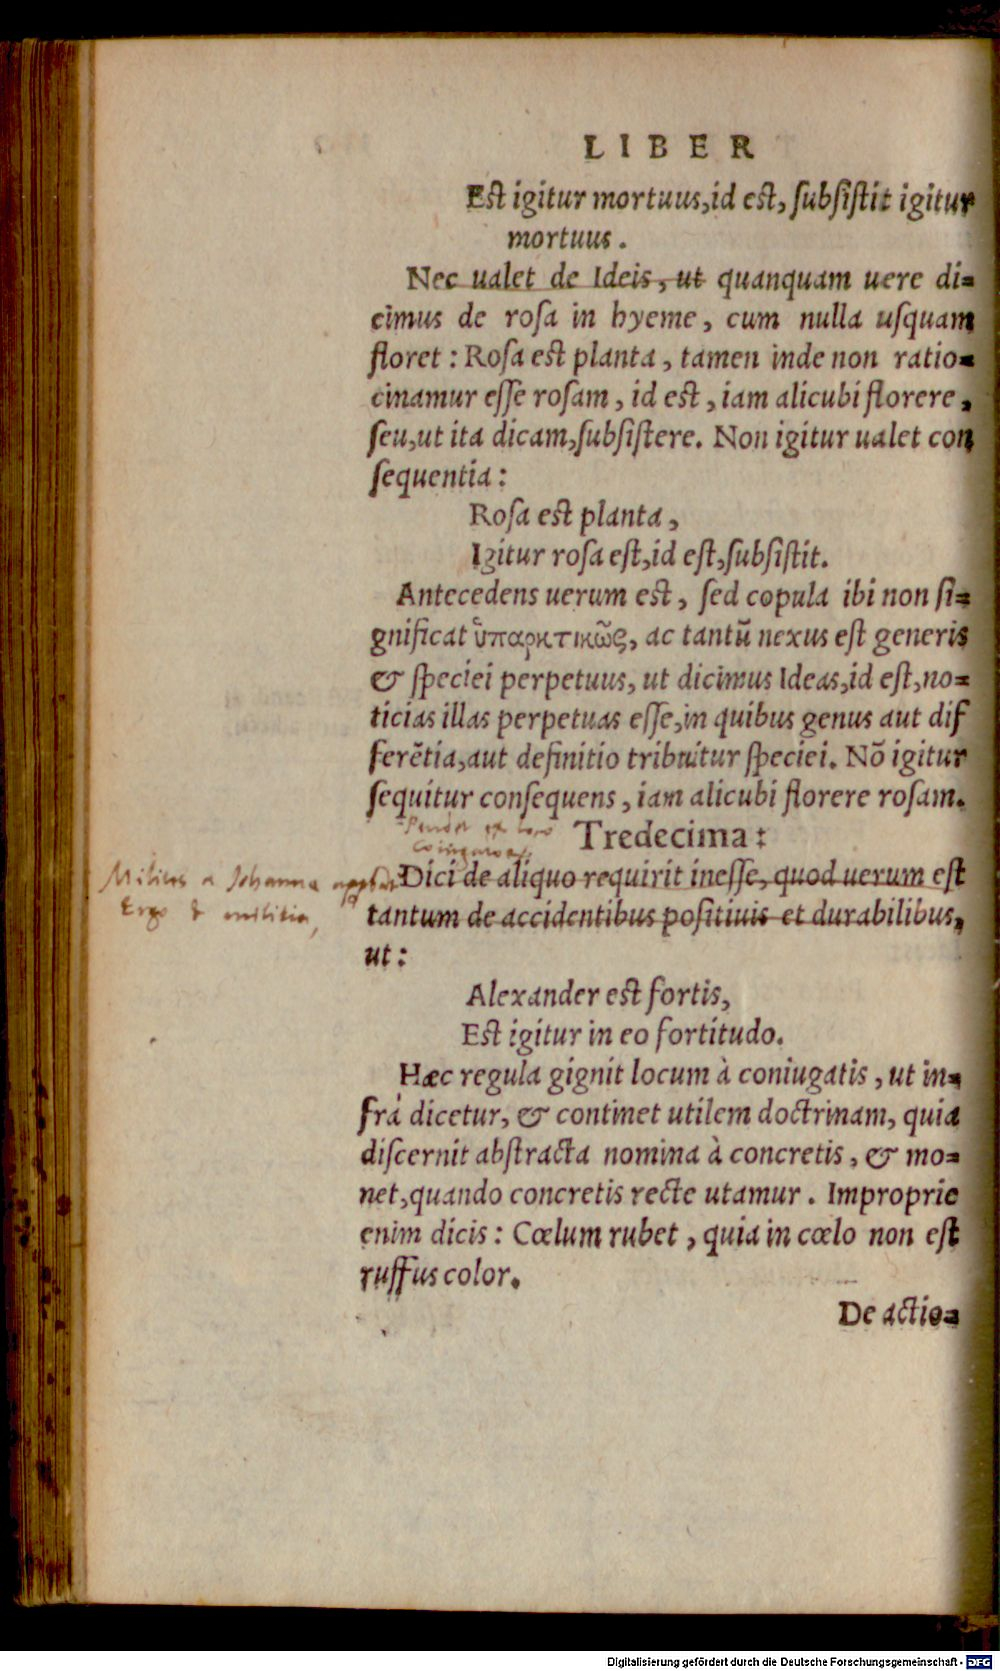 LIBER
Est igitur mortuus,id est, subsistit igitur
mortuus.
Nec ualet de Ideis, ut quanquam uere di=
cimus de rosa in hyeme, cum nulla usquam
floret: Rosa est planta, tamen inde non ratio=
cinamur esse rosam, id est, iam alicubi florere,
seu,ut ita dicam,subsistere. Non igitur ualet con
sequentia:
Rosa est planta,
Igitur rosa est,id est,subsistit.
Antecedens uerum est, sed copula ibi non si=
gnificat ὑπαρκτικῶς, ac tantũ nexus est generis
& speciei perpetuus, ut dicimus Ideas,id est,no=
ticias illas perpetuas esse,in quibus genus aut dif
ferẽtia,aut definitio tribuitur speciei. Nõ igitur
sequitur consequens, iam alicubi florere rosam.
Tredecima:
Milites a Johanna
Ergo & militia,
Dici de aliquo requirit inesse, quod uerum est
tantum de accidentibus positiuis et durabilibus,
ut:
Alexander est fortis,
Est igitur in eo fortitudo.
Hæc regula gignit locum à coniugatis, ut in=
frà dicetur, & continet utilem doctrinam, quia
discernit abstracta nomina à concretis, & mo=
net,quando concretis recte utamur. Improprie
enim dicis: Cœlum rubet, quia in cœlo non est
ruffus color.
De actio=
Digitalisierung gefördert durch die Deutsche Forschungsgemeinschaft - DFG